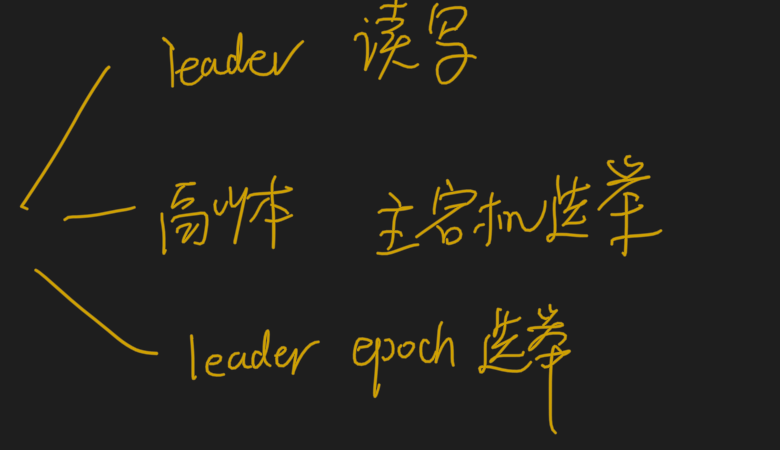 leader 读写
高水本 主容机选举
leader epoch 选举